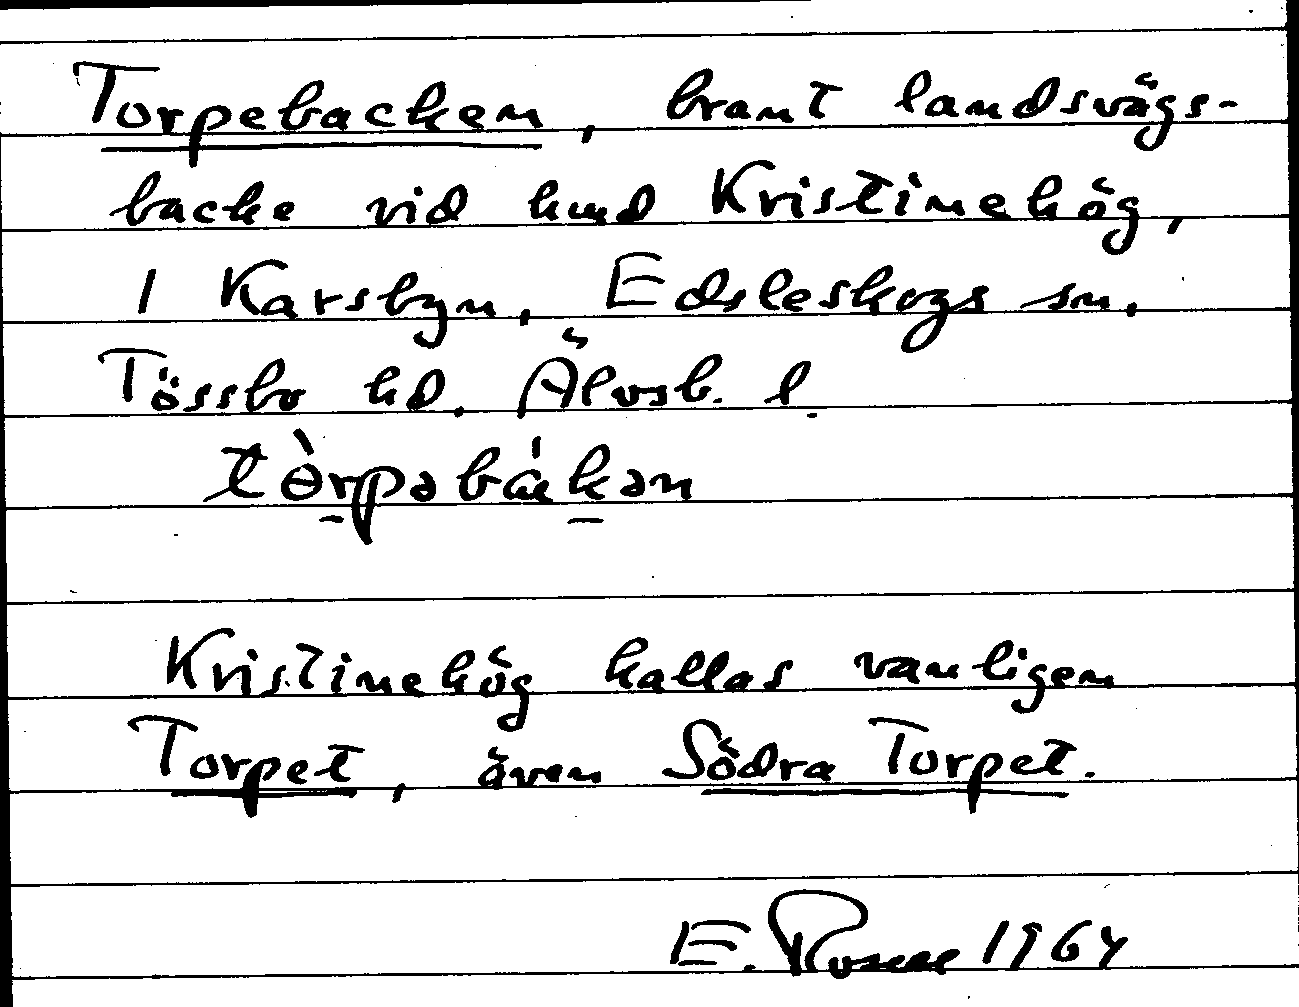 Torpebacken, brant landsvägs-
backe vid hmd Kristinehög,
i Karsbyn, Edsleskogs sn.
Tössbo hd. Älvsb. l.
tɵ̀rpəbákən
Kristinehög kallas vanligen
Torpet, även Södra Torpet.
E. 1964